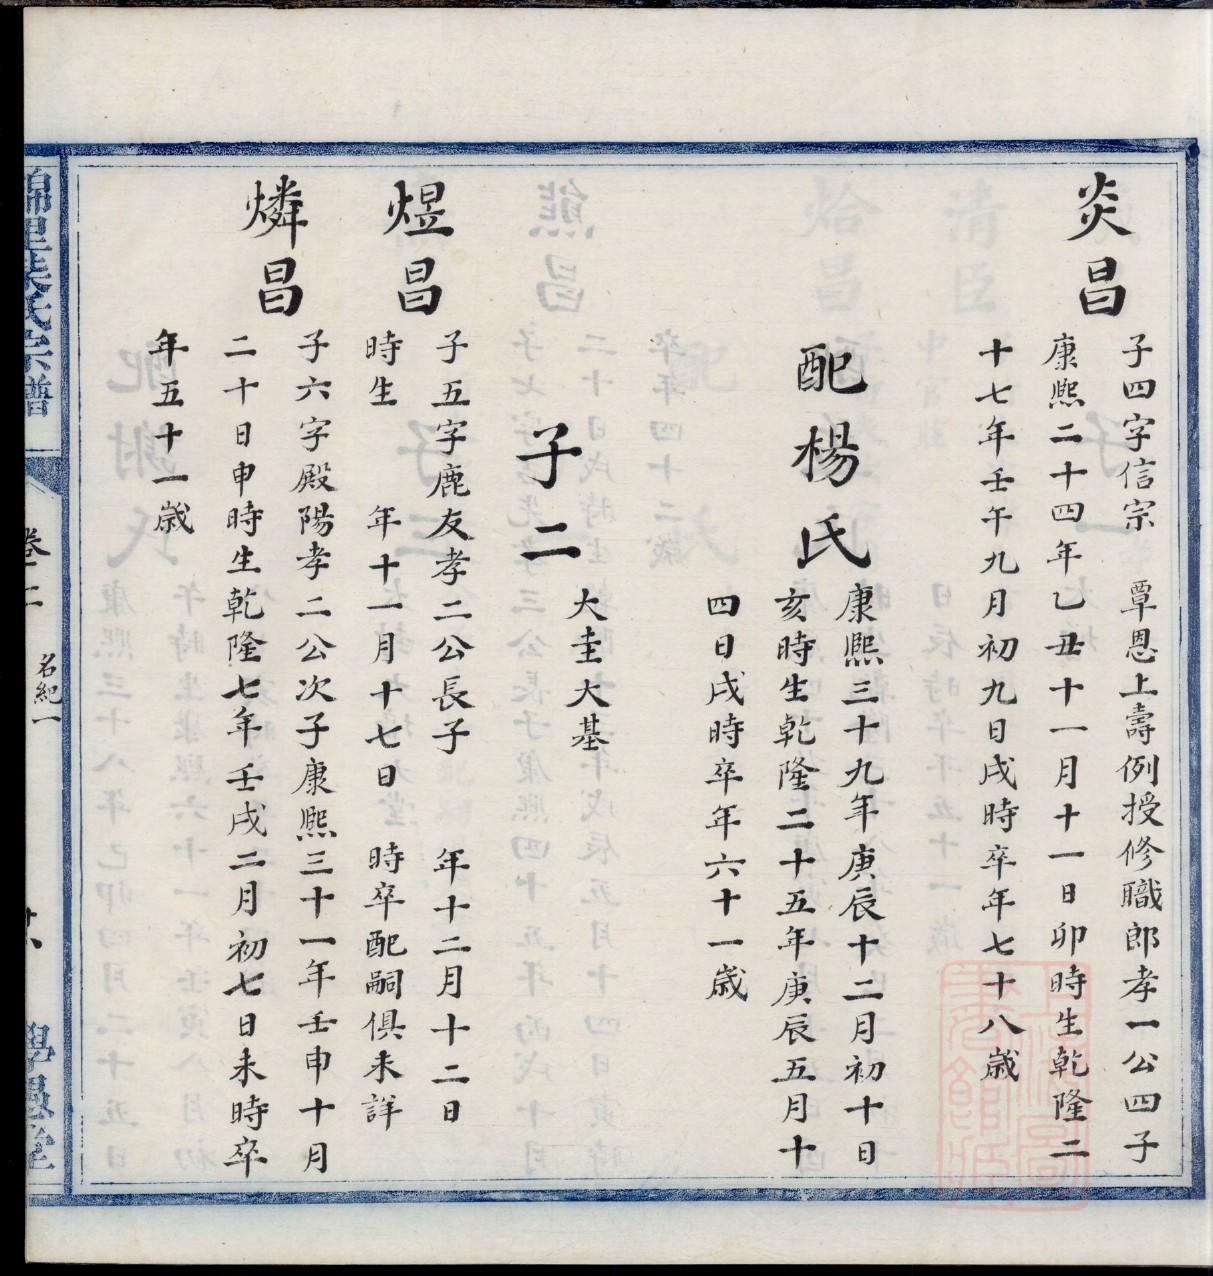 炎昌
子四字信宗 覃恩上壽例授修職郎孝一公四子
康熙二十四年乙丑十一月十一日卯時生乾隆二
十七年壬午九月初九日戌時卒年七十八歲
配楊氏
康熙三十九年庚辰十二月初十日
亥時生乾隆二十五年庚辰五月十
四日戌時卒年六十一歲
子二
大圭大基
煜昌
子五字鹿友孝二公長子 年十二月十二日
時生 年十一月十七日 時卒配嗣俱未詳
燐昌
子六字殿陽孝二公次子康熙三十一年壬申十月
二十日申時生乾隆七年壬戌二月初七日未時卒
年五十一歲
氏宗譜
卷二
名紀一